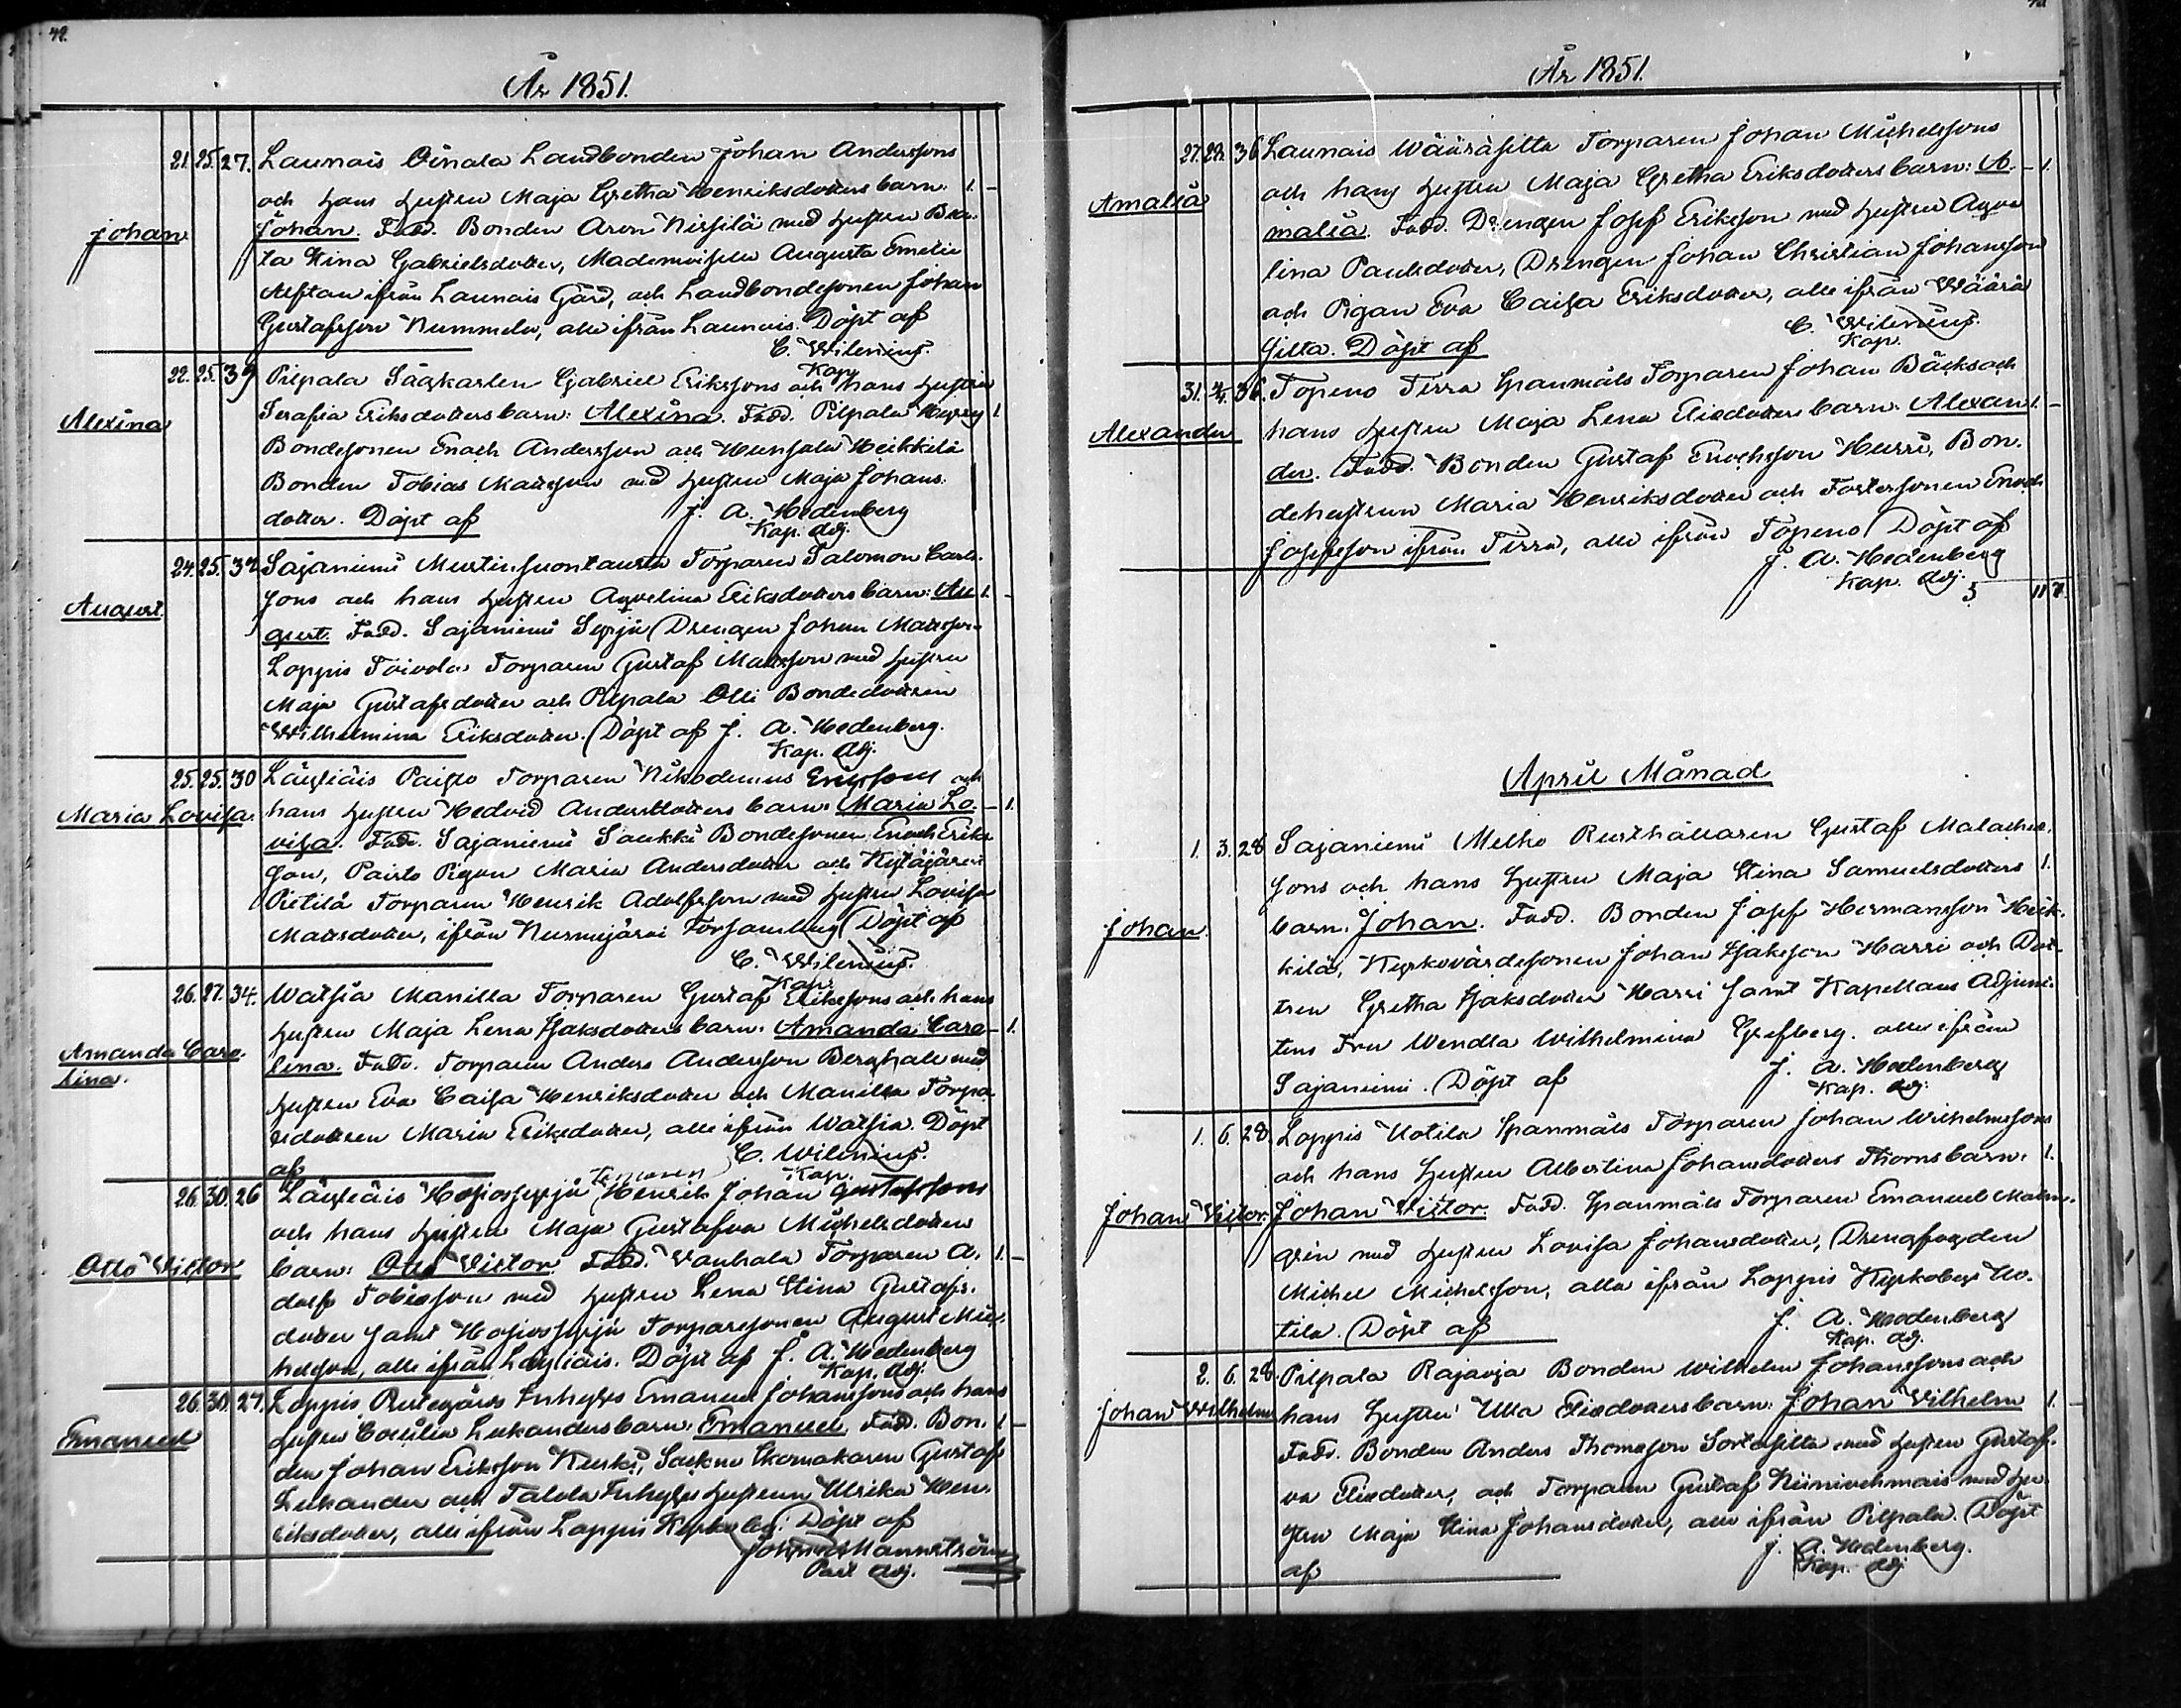 42.
År 1851.
Johan
21. 25. 27. Launais Oinala Landbonden Johan Anderssons
och hans hustru Maja Gretha Henriksdotters barn: 1. –
Johan. Fadd. Bonden Aron Nissilä med hustru Bea-
ta Stina Gabrielsdotter, Mademoiselle Augusta Emelie
Alftan ifrån Launais Gård, och Landbondesonen Johan
Gustafsson Nummela, alla ifrån Launais. Döpt af
C. Wilenius.
Kap.
Alexina
22. 25. 39 Pilpala Sågkarlen Gabriel Erikssons och hans hustru
Serafia Eriksdotters barn: Alexina. Fadd. Pilpala 1.
Bondesonen Enoch Andersson och Hunsala Heikkilä
Bonden Tobias Mattsson med hustru Maja Johans-
dotter. Döpt af J. A. Hedenberg
Kap. Adj.
August
24. 25. 32 Sajaniemi Mustinsuontausta Torparen Salomon Carls-
sons och hans hustru Aqvelina Eriksdotters barn: Au- 1. –
gust. Fadd. Sajaniemi Syrjä Drengen Johan Mattsson
Loppis Toivola Torparen Gustaf Mattsson med hustru
Maja Gustafsdotter och Pilpala Olli Bondedottren
Wilhelmina Eriksdotter. Döpt af J. A. Hedenberg.
Kap. Adj.
Maria Lovisa.
25. 25. 30 Läyliäis Paisto Torparen Nikodemus Erikssons och
hans hustru Hedvid Andersdotters barn: Maria Lo- – 1.
visa. Fadd. Sajaniemi Saukki Bondesonen Enoch Eriks-
son, Paisto Pigan Maria Andersdotter och Kytäjärvi
Pietilä Torparen Henrik Adolfsson med hustru Lovisa
Mattsdotter, ifrån Nurmijärvi Församling Döpt af
C. Wilenius.
Kap.
Amanda Caro-
lina.
26. 27. 34. Watsia Manilla Torparen Gustaf Erikssons och hans
hustru Maja Lena Isaksdotters barn: Amanda Caro- – 1.
lina. Fadd. Torparen Anders Andersson Berghäll med
hustru Eva Caisa Henriksdotter och Manilla Torpa-
redottren Maria Eriksdotter, alla ifrån Watsia. Döpt
af C. Wilenius.
Kap.
Otto Victor
Torparen
26. 30. 26 Läyliäis Hosiossyrjä Henrik Johan Gustafssons
och hans hustru Maja Gustafva Michelsdotters
barn: Otto Victor Fadd. Vanhala Torparen A- 1. –
dolf Tobiasson med hustru Lena Stina Gustafs-
dotter samt Hosiossyrjä Torparesonen August Mi-
helsson, alla ifrån Läyliäis. Döpt af J. A. Hedenberg
Kap. Adj.
Emanuel
26. 30. 27. Loppis Inhyses Emanuel Johanssons och hans
hustru Cecilia Lukanders barn: Emanuel. Fadd. Bon- 1 –
den Johan Eriksson Keuki, Skomakaren Gustaf
Lukander och Talola Inhyses hustrun Ulrika Hen-
riksdotter, alla ifrån Loppis Kyrkoby: Döpt af
Mannström
Past. Adj.
År 1851.
Amalia
27. 29. 36 Launais Wääräsilta Torparen Johan Michelssons
och hans hustru Maja Gretha Eriksdotters barn: A- – 1.
malia. Fadd. Drengen Josef Eriksson med hustru Aqve-
lina Paulsdotter, Drengen Johan Christian Johansson
och Pigan Eva Caisa Eriksdotter, alla ifrån Wäärä
silta. Döpt af C. Wilenius.
Kap.
Alexander
31. 4. 36. Topeno Tirra Spanmåls Torparen Johan Bäcks och
hans hustru Maja Lena Eliædotters barn: Alexan- 1. –
der. Fadd. Bonden Gustaf Enochsson Hurri, Bon-
dehustrun Maria Henriksdotter och Fostersonen Enoch
Josefsson ifrån Tirra, alla ifrån Topeno Döpt af
J. A. Hedenberg
Kap. Adj.
April Månad
Johan
1. 3. 28 Sajaniemi Melho Rusthållaren Gustaf Malachie-
sons och hans hustru Maja Stina Samuelsdotters 1.
barn: Johan. Fadd. Bonden Josef Hermansson Heik-
kilä, Kyrkovärdesonen Johan Isaksson Harri och Dot-
tren Gretha Isaksdotter Harri samt Kapellans Adjunk-
tens Fru Wendla Wilhelmina Grefberg. alla ifrån
Sajaniemi. Döpt af J. A. Hedenberg
Kap. Adj.
Johan Victor.
1. 6. 28. Loppis Uotila Spanmåls Torparen Johan Wilhelmssons
och hans hustru Albertina Johansdotters Thorns barn: 1.
Johan Victor. Fadd. Spanmåls Torparen Emanuel Malm-
grén med hustru Lovisa Johansdotter, Drengfogden
Michel Michelsson, alla ifrån Loppis Kyrkoby Uo-
tila. Döpt af J. A. Hedenberg
Kap. Adj.
Johan Wilhelm
2. 6. 28. Pilpala Rajaoja Bonden Wilhelm Johanssons och
hans hustru Ulla Eliædotters barn: Johan Vilhelm 1. –
Fadd. Bonden Anders Thomasson Sortasilta med hustru Gustaf-
va Eliædotter, och Torparen Gustaf Niinivehmais med hu-
stru Maja Stina Johansdotter, alla ifrån Pilpala. Döpt
af J. A. Hedenberg.
Kap. Adj